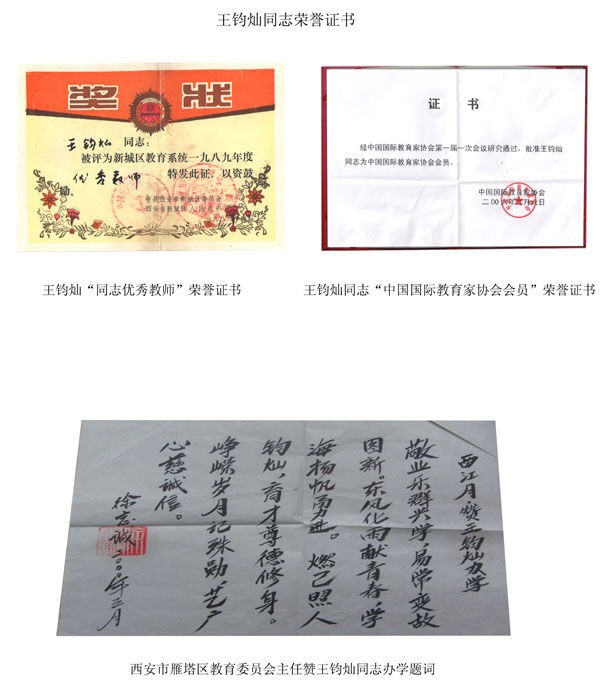 王钧灿同志荣誉证书
奖状
王钧灿 同志：
被评为新城区教育系统一九八九年度
优秀教师 特发此证，以资鼓
励。
西安市新城区人民
证书
经中国国际教育家协会第一届一次会议研究通过，批准王钧灿
同志为中国国际教育家协会会员。
中国国际教育家协会
二00六年 月 日
王钧灿“同志优秀教师”荣誉证书
王钧灿同志“中国国际教育家协会会员”荣誉证书
西江月·赞王钧灿办学
敬业乐群兴学，易常变故
因新。东风化雨献青春，学
海扬帆勇进。燃己照人
钧灿，育才尊德修身。
峥嵘岁月记殊勋，艺广
心慈誠信。
徐志诚二〇〇〇年三月
西安市雁塔区教育委员会主任赞王钧灿同志办学题词